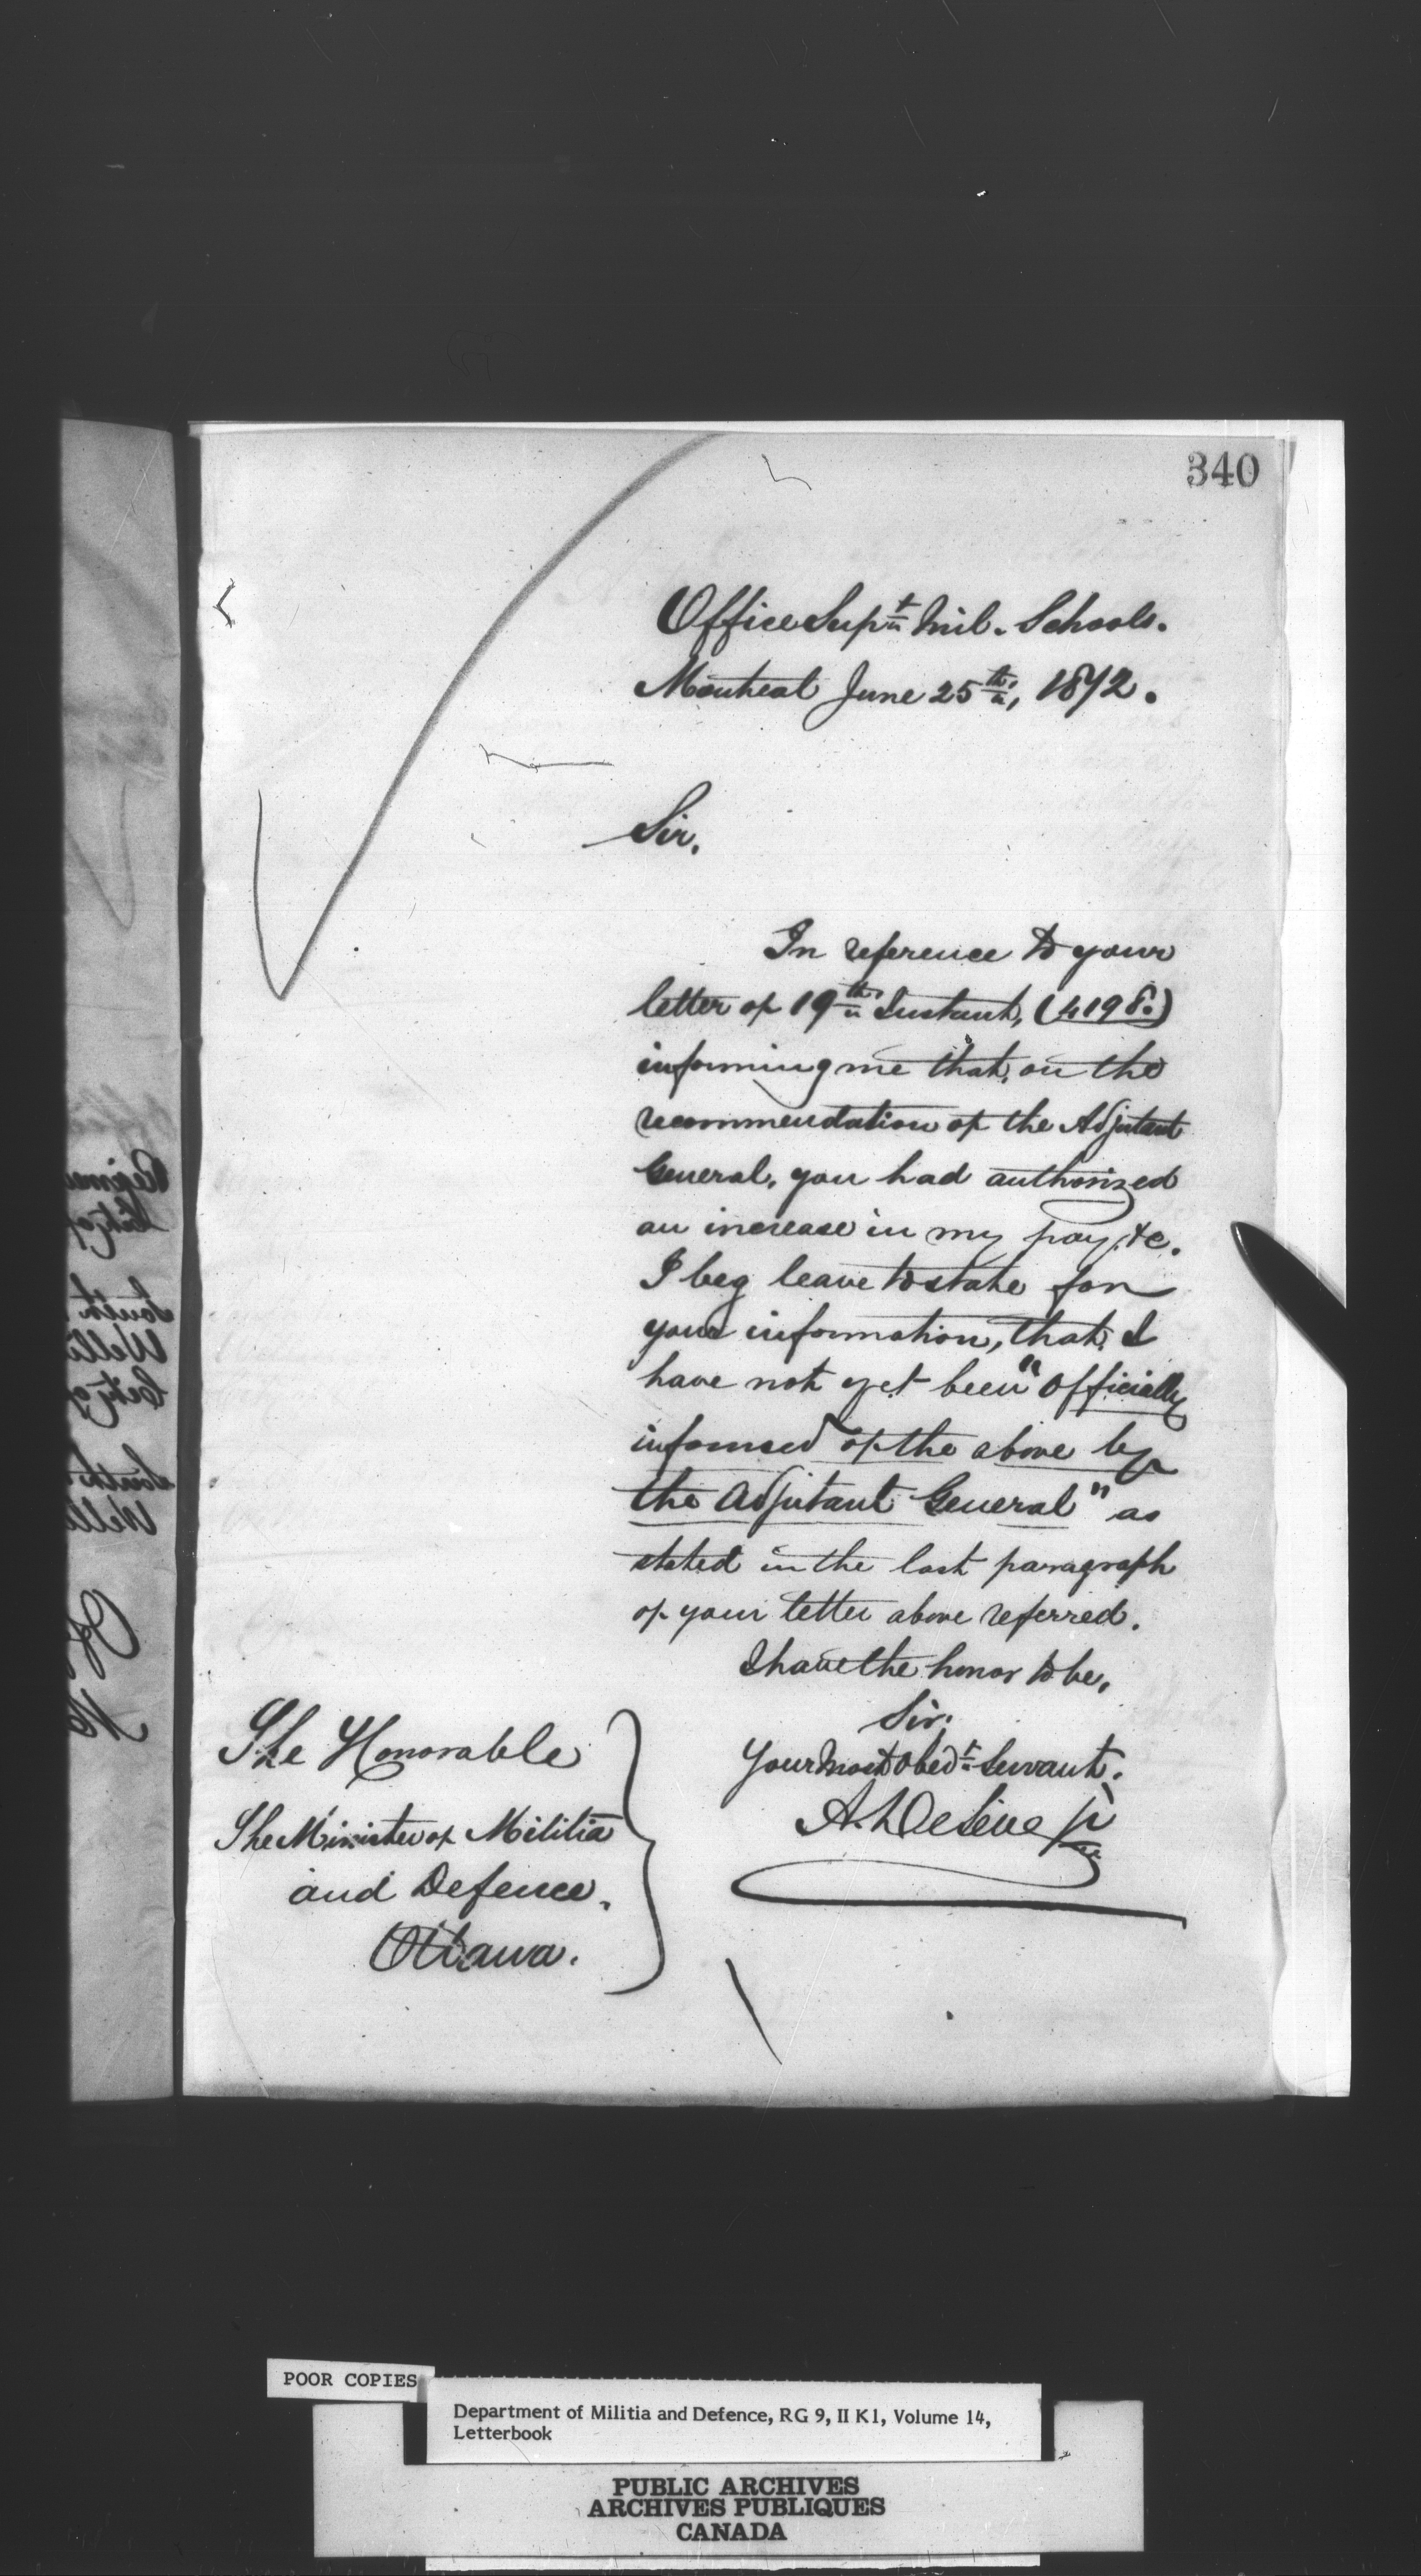 340
Office Supt Mil. Schools.
Montreal June 25th, 1872.
Sir.
In reference to your
letter of 19th Instant, (4198.)
informing me that, on the
recommendation of the Adjutant
General, you had authorized
an increase in my pay, &c.
I beg leave to state for
your information, that, I
have not yet been "Officially
informed of the above by
the Adjutant General" as
stated in the last paragraph
of your letter above referred.
I have the honor to be,
Sir.
Your most obedt Servant.
The Honorable
The Minister of Militia
and Defence.
Ottawa.
POOR COPIES
Department of Militia and Defence, RG 9, II K1, Volume 14,
Letterbook
PUBLIC ARCHIVES
ARCHIVES PUBLIQUES
CANADA